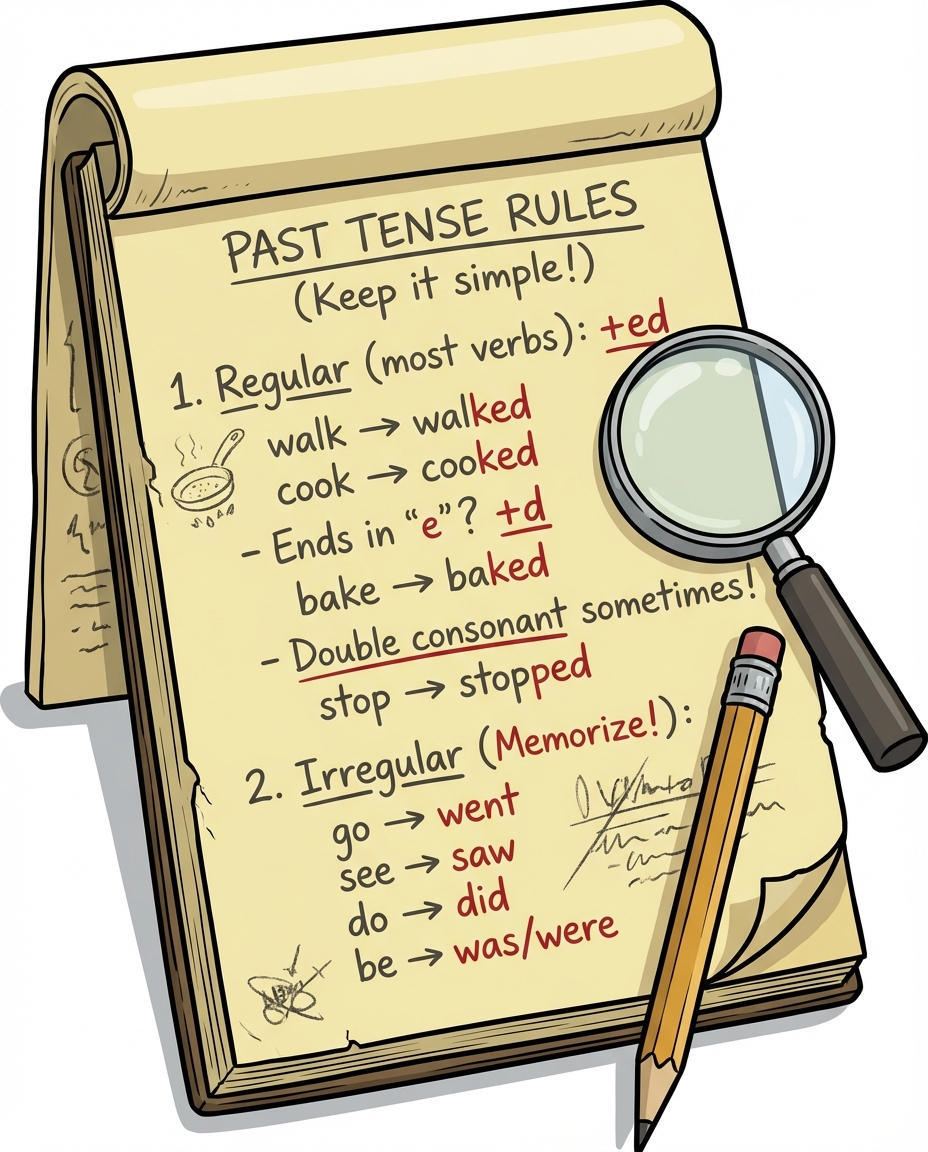 PAST TENSE RULES
(Keep it simple!)
1. Regular (most verbs): +ed
walk → walked
cook → cooked
– Ends in “e”? +d
bake → baked
– Double consonant sometimes!
stop → stopped
2. Irregular (Memorize!):
go → went
see → saw
do → did
be → was/were